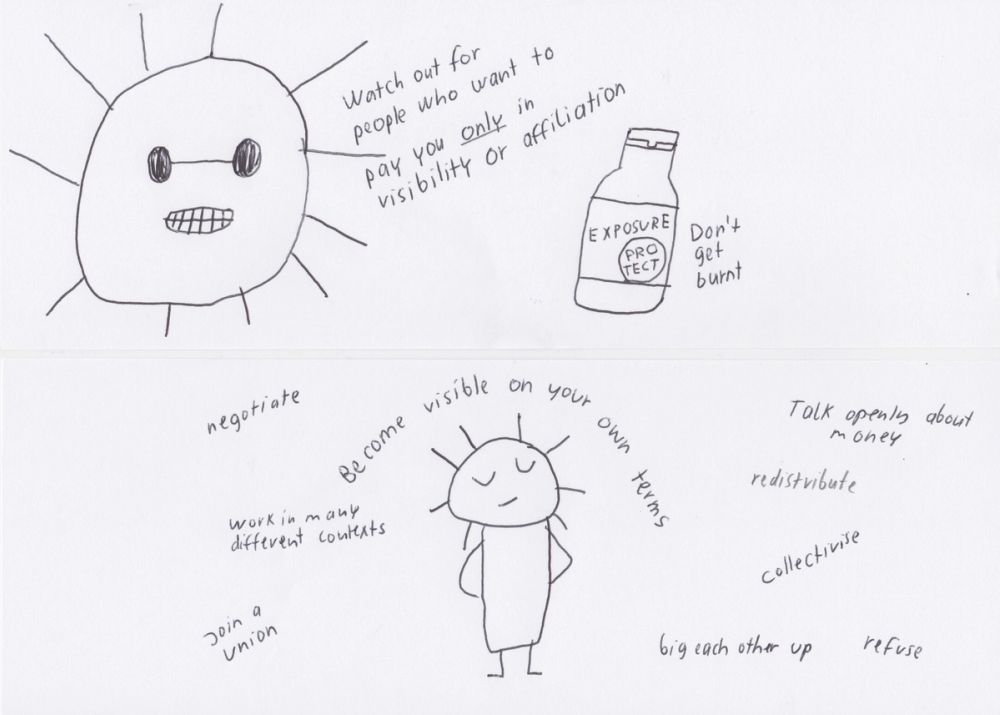 Watch out for
people who want to
pay you only in
visibility or affiliation
EXPOSURE
PRO
TECT
Don't
get
burnt
negotiate
Become visible on your own terms
Talk openly about
money
redistribute
work in many
different contexts
collectivise
Join a
union
big each other up
refuse